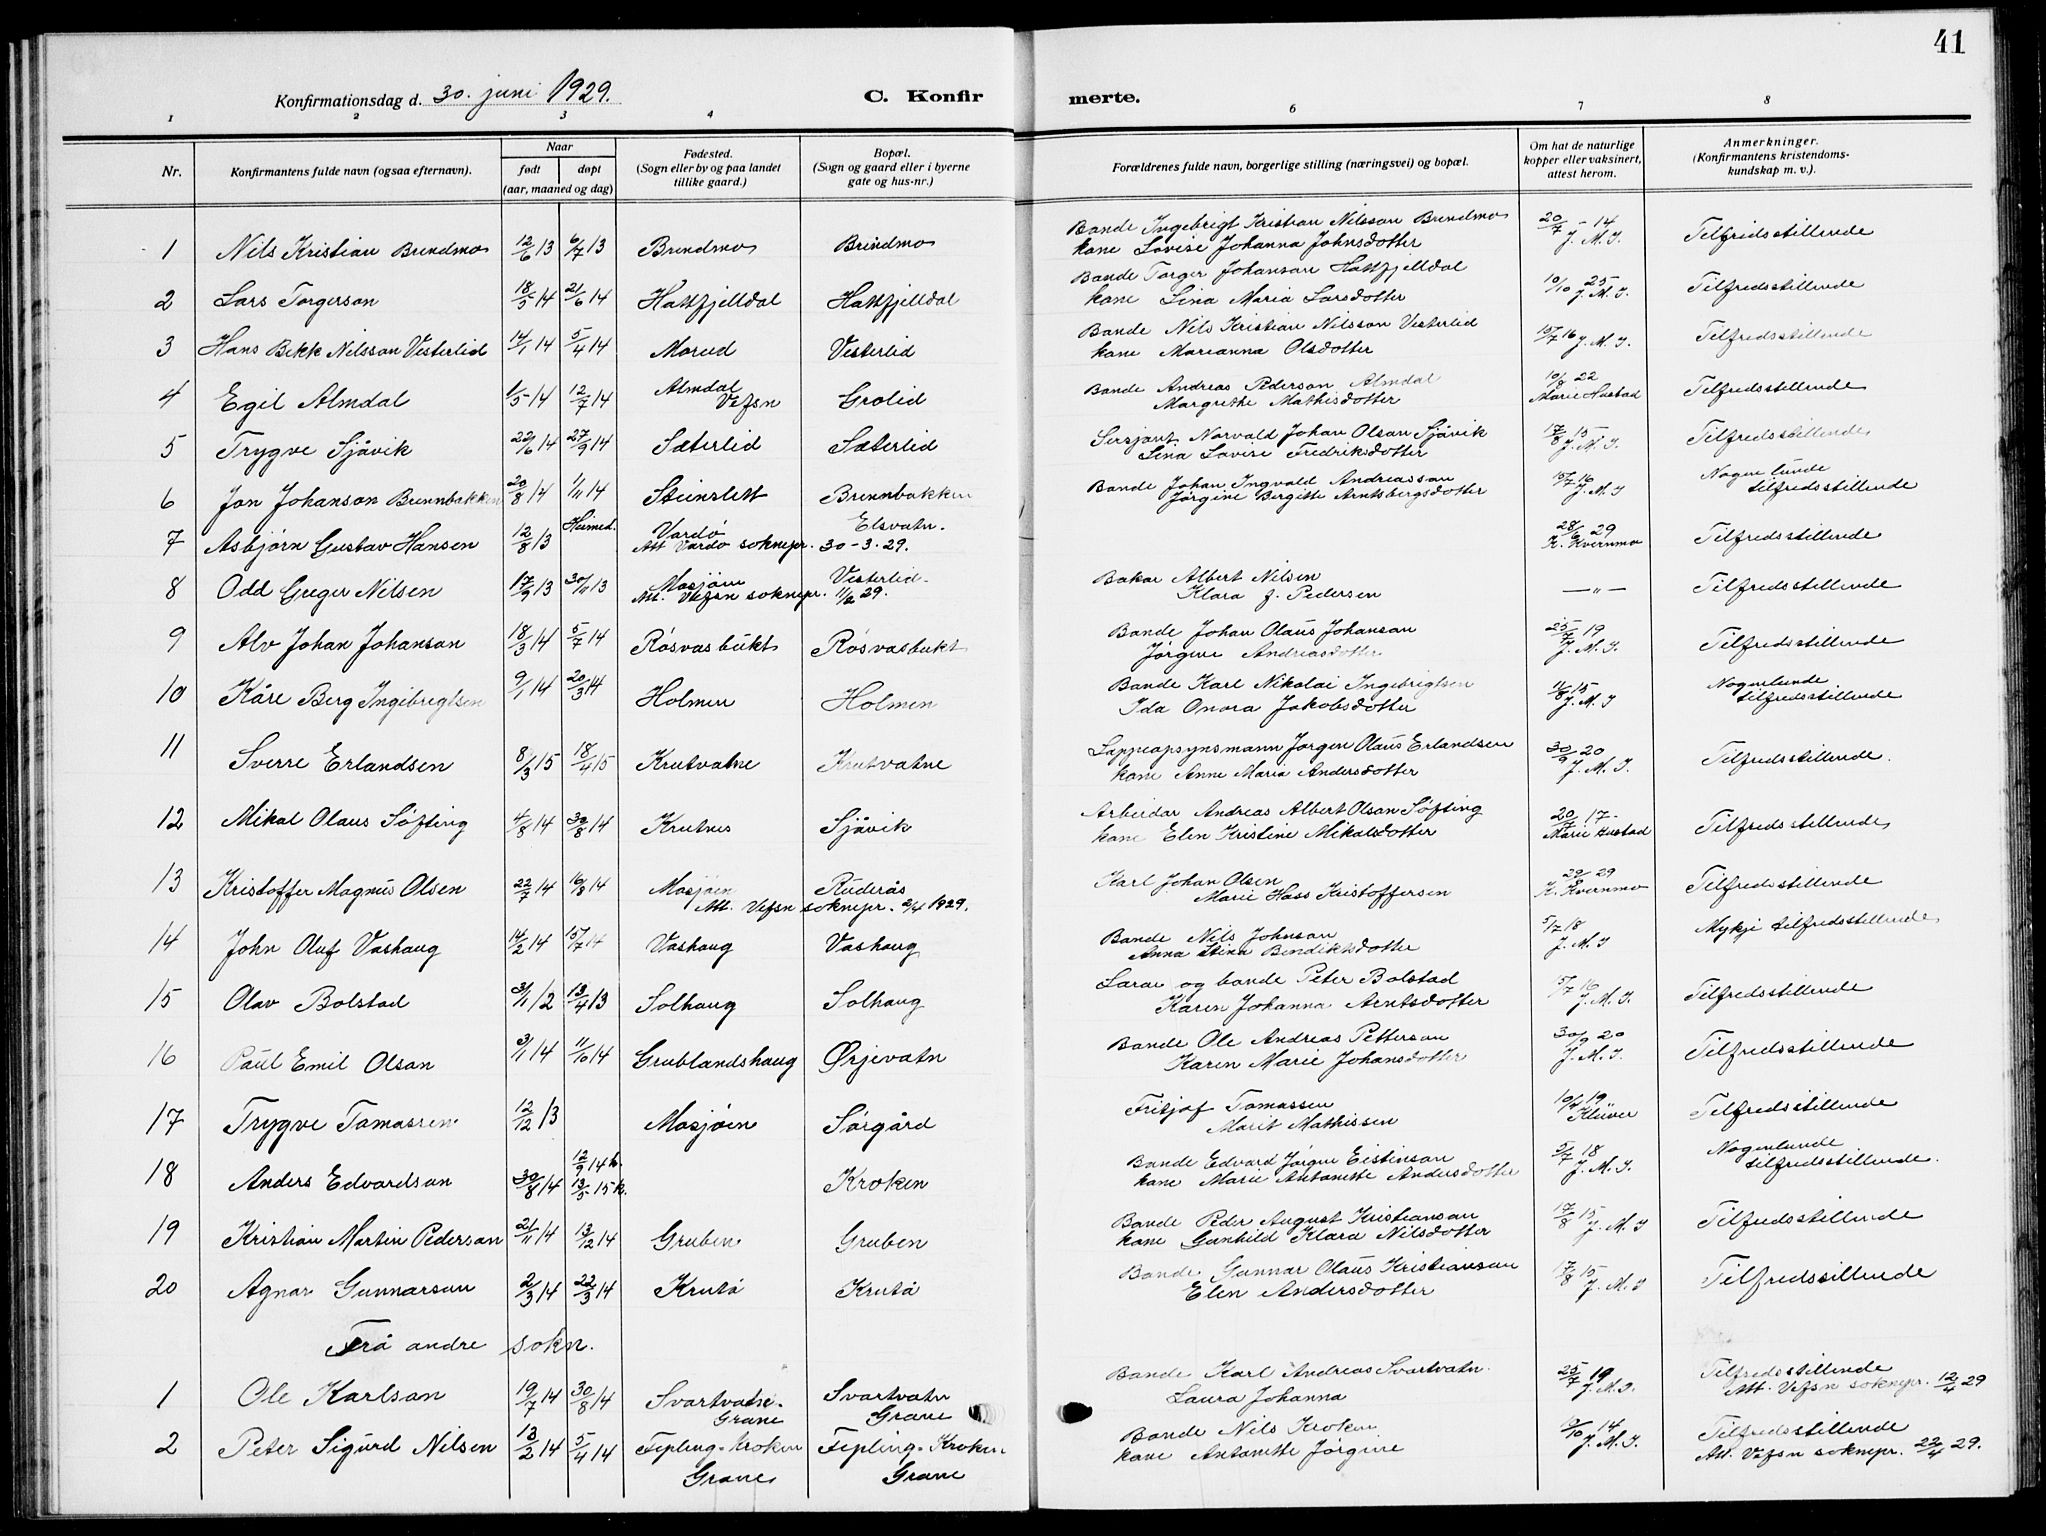 41
Konfirmationsdag d. 30. juni 1929.
C. Konfirmerte.
1 2 3 4 6 7 8
Nr. Konfirmantens fulde navn (ogsaa efternavn). Naar født døpt (aar, maaned og dag) Fødested. (Sogn eller by og paa landet tillike gaard.) Bopæl. (Sogn og gaard eller i byerne gate og hus-nr.) Forældrenes fulde navn, borgerlige stilling (næringsvei) og bopæl. Om hat de naturlige kopper eller vaksinert, attest herom. Anmerkninger. (Konfirmantens kristendomskundskap m. v.).
1 Nils Kristian Brendmo 12/6 13 6/7 13 Brendmo Brendmo Bonde Ingebrigt Kristian Nilsson Brendmo 20/7 - 14 Tilfredsstillende
kone Lovise Johanna Johnsdotter J. M. I.
2 Lars Torgerson 18/5 14 21/6 14 Hattfjelldal Hattfjelldal Bonde Torger Johanson Hattfjelldal 10/10 25 Tilfredsstillende
kone Lina Maria Larsdotter J. M. I.
3 Hans Bekk Nilsson Vesterlid 14/1 14 5/4 14 Morud Vesterlid Bonde Nils Kristian Nilsson Vesterlid 15/7 16 J. M. I. Tilfredsstillende
kone Marianna Olsdotter
4 Egil Almdal 1/5 14 12/7 14 Almdal Vefsn Grolid Bonde Andreas Pederson Almdal 10/8 22 Tilfredsstillende
Margrethe Mathisdotter Marie Hustad
5 Trygve Sjåvik 22/6 14 27/9 14 Sæterlid Sæterlid Sersjant Norvald Johan Olson Sjåvik 17/8 15 Tilfredsstillende
Lina Lovise Fredriksdotter J. M. I.
6 Jon Johanson Brennbakken 20/8 14 1/11 14 Steinslett Brennbakken Bonde Johan Ingvald Andreasson 15/7 16 Nogenlunde
Jørgine Bergitte Arntsbergsdotter J. M. I tilfredsstillende
7 Asbjørn Gustav Hansen 12/8 13 Heimed. Vardø Elsvatn. 28/6 29 Tilfredsstillende
Att. Vardø soknepr. 30-3-29. K. Kvernmo
8 Odd Greger Nilsen 17/9 13 30/11 13 Mosjøen Vesterlid. Bakar Albert Nilsen — " — Tilfredsstillende
Att. Vefsn soknepr. 11/2 29. Klara J. Pedersen
9 Alv Johan Johanson 18/3 14 5/7 14 Røsvasbukt Røsvasbukt Bonde Johan Olaus Johanson 25/7 19 Tilfredsstillende
Jørgine Andreasdotter J. M. I.
10 Kåre Berg Ingebrigtsen 9/1 14 20/3 14 Holmen Holmen Bonde Karl Nikolai Ingebrigtsen 11/8 15 Nogenlunde
Ida Onora Jakobsdotter J. M. I tilfredsstillende
11 Sverre Erlandsen 8/3 15 18/4 15 Krutvatne Krutvatne Lappeopsynsmann Jørgen Olaus Erlandsen 30/9 20 Tilfredsstillende.
kone Anne Maria Andersdotter J. M. I.
12 Mikal Olaus Søfting 4/8 14 30/8 14 Krutnes Sjåvik Arbeidar Andreas Albert Olson Søfting 20/7 17 Tilfredsstillende
kone Elen Kristine Mikalsdotter Marie Hustad
13 Kristoffer Magnus Olsen 22/7 14 16/8 14 Mosjøen Ruderås Karl Johan Olsen 29 Tilfredsstillende
Att. Vefsn soknepr. 2/4 1929. Marie Hass Kristoffersen K. Kvernmo
14 John Oluf Vashaug 14/2 14 15/7 14 Vashaug Vashaug Bonde Nils Johnson 5/7 18 Mykje tilfredsstillende
Anna Stina Bendiksdotter J. M. I
15 Olav Bolstad 3/1 12 13/4 13 Solhaug Solhaug Lærar og bonde Peter Bolstad 5/7 16 Tilfredsstillende
Karen Johanna Arntsdotter J. M. I.
16 Paul Emil Olson 3/1 14 11/10 14 Grublandshaug Ørjevatn Bonde Ole Andreas Petterson 30/9 20 Tilfredsstillende
Karen Marie Johansdotter J. M. I.
17 Trygve Tomassen 12/12 13 Mosjøen Sørgård Fritjof Tomassen 10/2 19 Tilfredsstillende
Marit Mathissen Klüver
18 Anders Edvardson 30/8 14 12/9 14 h. 13/5 15 k. Kroken Bonde Edvard Jørgen Eistinson 5/7 18 Nogenlunde
kone Marie Antonette Andersdotter J. M. I. tilfredsstillende.
19 Kristian Martin Pederson 21/11 14 13/12 14 Gruben Gruben Bonde Peder August Kristianson 17/8 15 Tilfredsstillende
kone Gunhild Klara Nilsdotter J. M. I
20 Agnar Gunnarson 2/3 14 22/3 14 Krutå Krutå Bonde Gunnar Olaus Kristianson 17/8 15 Tilfredsstillende
Elen Andersdotter J. M. I
Frå andre sokn.
1 Ole Karlson 19/7 14 30/8 14 Svartvatne. Grane Svartvatn Grane Bonde Karl Andreas Svartvatn. 25/7 19 Tilfredsstillende
Laura Johanna J. M. I. Att. Vefsn soknepr. 12/4 29
2 Peter Sigurd Nilsen 13/2 14 5/4 14 Fepling-Kroken Grane Fepling-Kroken Grane Bonde Nils Kroken 14 Tilfredsstillende
kone Antonette Jørgine J. M. I. Att. Vefsn soknepr. 22/4 29.